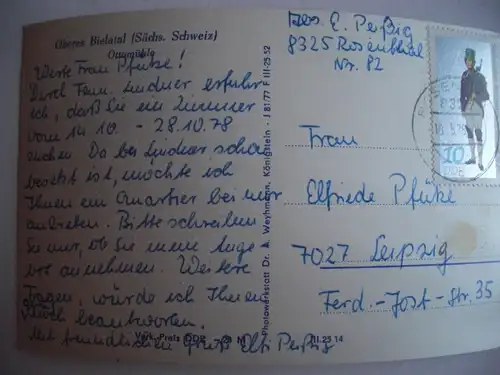 Oberes Bielatal (Sächs. Schweiz)
Ottomühle
Werte Frau Pfütze!
Durch Fam. Lindner erfuhr
ich, daß Sie ein Zimmer
vom 14.10. - 28.10.78
suchen. Da bei Lindner schon
besetzt ist, möchte ich
Ihnen ein Quartier bei mir
anbieten. Bitte schreiben
Sie mir, ob Sie mein Ange
bot annehmen. Weitere
Fragen, würde ich Ihnen
beantworten.
Mit freundlichen Gruß Elli Peßzig
Verk.-Preis DDR M
III 25 14
Photowerkstatt Dr. A. Weyhmann, Königstein · J 81/77 F III-25-52
Abs. E. Peßzig
8325 Rosenthal
Nr. 82
10
DDR
Frau
Elfriede Pfütze
7027 Leipzig
Ferd.-Jost-Str. 35